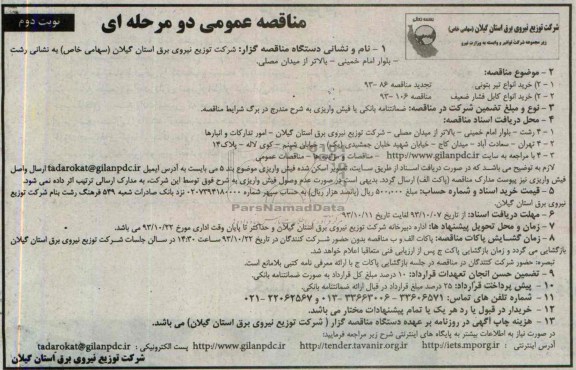 نوبت دوم
مناقصه عمومی دو مرحله ای
شرکت توزیع نیروی برق استان گیلان (سهامی خاص)
زیر مجموعه شرکت توانیر وابسته به وزارت نیرو
۱ - نام و نشانی دستگاه مناقصه گزار: شرکت توزیع نیروی برق استان گیلان (سهامی خاص) به نشانی رشت
- بلوار امام خمینی - بالاتر از میدان مصلی.
۲ - موضوع مناقصه:
۱ - ۲) خرید انواع تیر بتونی تجدید مناقصه ۸۶ - ۹۳
۲ - ۲) خرید انواع کابل فشار ضعیف مناقصه ۱۰۶ - ۹۳
۳ - نوع و مبلغ تضمین شرکت در مناقصه: ضمانتنامه بانکی یا فیش واریزی به شرح مندرج در برگ شرایط مناقصه.
۴ - محل دریافت اسناد مناقصه:
۱ - ۴ رشت - بلوار امام خمینی - بالاتر از میدان مصلی - شرکت توزیع نیروی برق استان گیلان - امور تدارکات و انبارها
۲ - ۴ تهران - سعادت آباد - میدان کاج - خیابان شهید خلبان جمشیدی (یکم) - خیابان شبنم - کوی لاله - پلاک ۱۴
۳ - ۴ با مراجعه به سایت http://www.gilanpdc.ir - مناقصات و مزایده ها - مناقصات عمومی
لازم به توضیح می باشد که در صورت دریافت اسناد از طریق سایت، تصویر اسکن شده فیش واریزی موضوع بند ۵ می بایست به آدرس ایمیل tadarokat@gilanpdc.ir ارسال واصل
فیش واریزی نیز پیوست مدارک مناقصه (پاکت الف) ارسال گردد. بدیهی است در صورت عدم وصول فیش واریزی به شرح فوق توسط این شرکت، به مدارک ارسالی ترتیب اثر داده نمی شود.
۵ - قیمت خرید اسناد و شماره حساب: مبلغ ۵۰۰,۰۰۰ ریال (پانصد هزار ریال) به حساب سپهر شماره ۰۲۰۷۳۹۴۱۸۰۰۰۰ نزد بانک صادرات شعبه ۵۴۹ فرهنگ رشت بنام شرکت توزیع
نیروی برق استان گیلان.
۶ - مهلت دریافت اسناد: از تاریخ ۹۳/۱۰/۰۷ لغایت تاریخ ۹۳/۱۰/۱۱
۷ - زمان و محل تحویل پیشنهاد ها: اداره دبیرخانه شرکت توزیع نیروی برق استان گیلان و حداکثر تا پایان وقت اداری مورخ ۹۳/۱۰/۲۲ می باشد.
۸ - زمان گشایش پاکات مناقصه: پاکات الف و ب مناقصه بدون حضور شرکت کنندگان در تاریخ ۹۳/۱۰/۲۲ ساعت ۱۴:۳۰ در سالن جلسات شرکت توزیع نیروی برق استان گیلان
بازگشایی می گردد و زمان بازگشایی پاکت ج پس از ارزیابی فنی متعاقبا اعلام خواهد شد.
تبصره: حضور شرکت کنندگان در مناقصه در جلسه بازگشایی پاکات ج با ارائه معرفی نامه کتبی بلامانع است.
۹ - تضمین حسن انجام تعهدات قرارداد: ۱۰ درصد مبلغ کل قرارداد به صورت ضمانتنامه بانکی.
۱۰ - پیش پرداخت قرارداد: ۲۵ درصد مبلغ قرارداد در قبال ارائه ضمانتنامه بانکی.
۱۱ - شماره تلفن های تماس: ۳۳۶۰۶۵۷۱ - ۳۳۶۶۳۰۰۶ - ۰۱۳ و ۲۲۰۶۲۵۶۷ - ۰۲۱
۱۲ - خریدار در قبول یا رد هر یک یا تمام پیشنهادات مختار می باشد.
۱۳ - هزینه چاپ آگهی در روزنامه بر عهده دستگاه مناقصه گزار (شرکت توزیع نیروی برق استان گیلان) می باشد.
در صورت نیاز به اطلاعات بیشتر به پایگاه های اینترنتی شرح زیر مراجعه فرمایید:
آدرس اینترنتی : http://iets.mporg.ir http://tender.tavanir.org.ir http://www.gilanpdc.ir پست الکترونیکی : tadarokat@gilanpdc.ir
شرکت توزیع نیروی برق استان گیلان
ParsNamadData